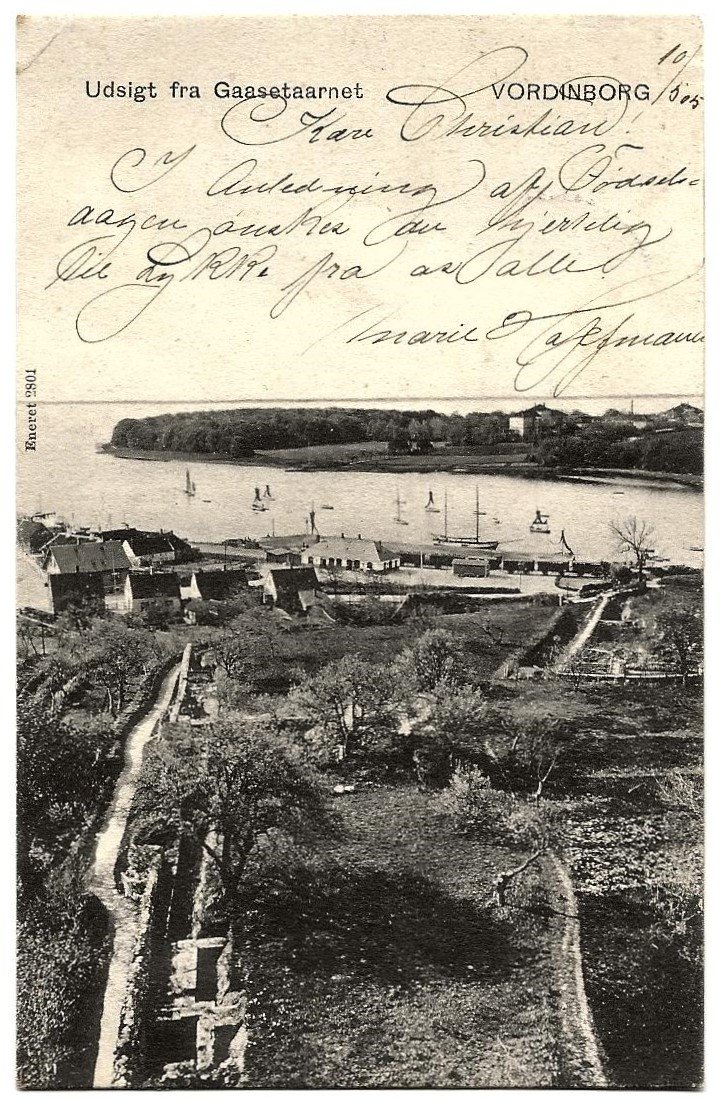 Udsigt fra Gaasetaarnet VORDINBORG 10/5 05
Kare Christian!
I Anledning af Fødsels=
dagen ønskes du hjertelig
Til Lykke fra os alle!
Marie Haffmann
Eneret 2801